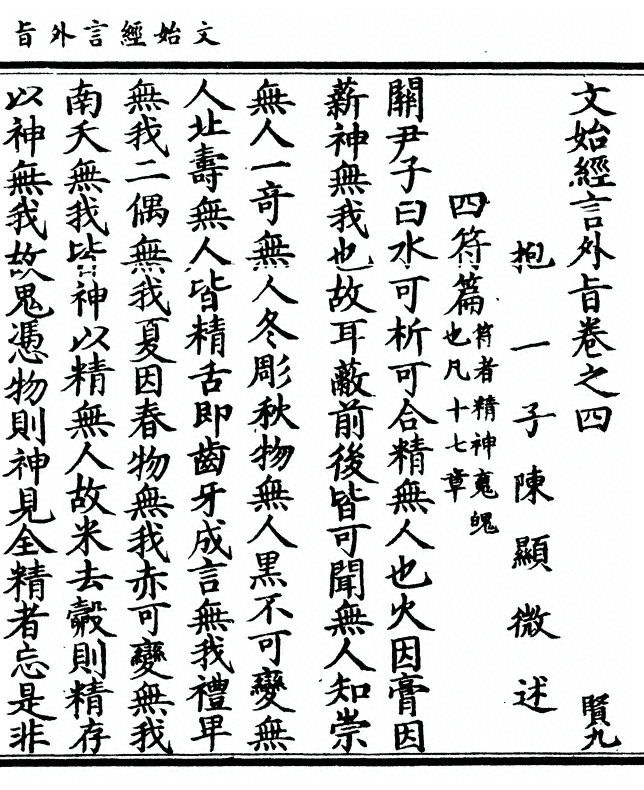 文始經言外旨
文始經言外旨卷之四 賢九
抱一子陳顯微述
四符篇 符者精神魂魄
也凡十七章
關尹子曰水可析可合精無人也火因膏因
薪神無我也故耳蔽前後皆可聞無人知崇
無人一奇無人冬彫秋物無人黑不可變無
人北壽無人皆精舌即齒牙成言無我禮卑
無我二偶無我夏因春物無我赤可變無我
南夭無我皆神以精無人故米去殼則精存
以神無我故鬼憑物則神見全精者忘是非